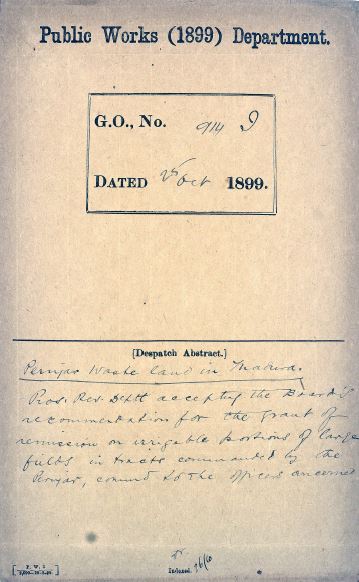 Public Works (1899) Department.
G.O., No. 914 I
DATED 25 Oct 1899.
[Despatch Abstract.]
Periyar Waste land in Madura.
Pros. Rev. Deptt accepting the Board's
recommendation for the grant of
remission on irrigable portions of large
fields in tracts commanded by the
Periyar, commd to the officers concerned
Indexed.